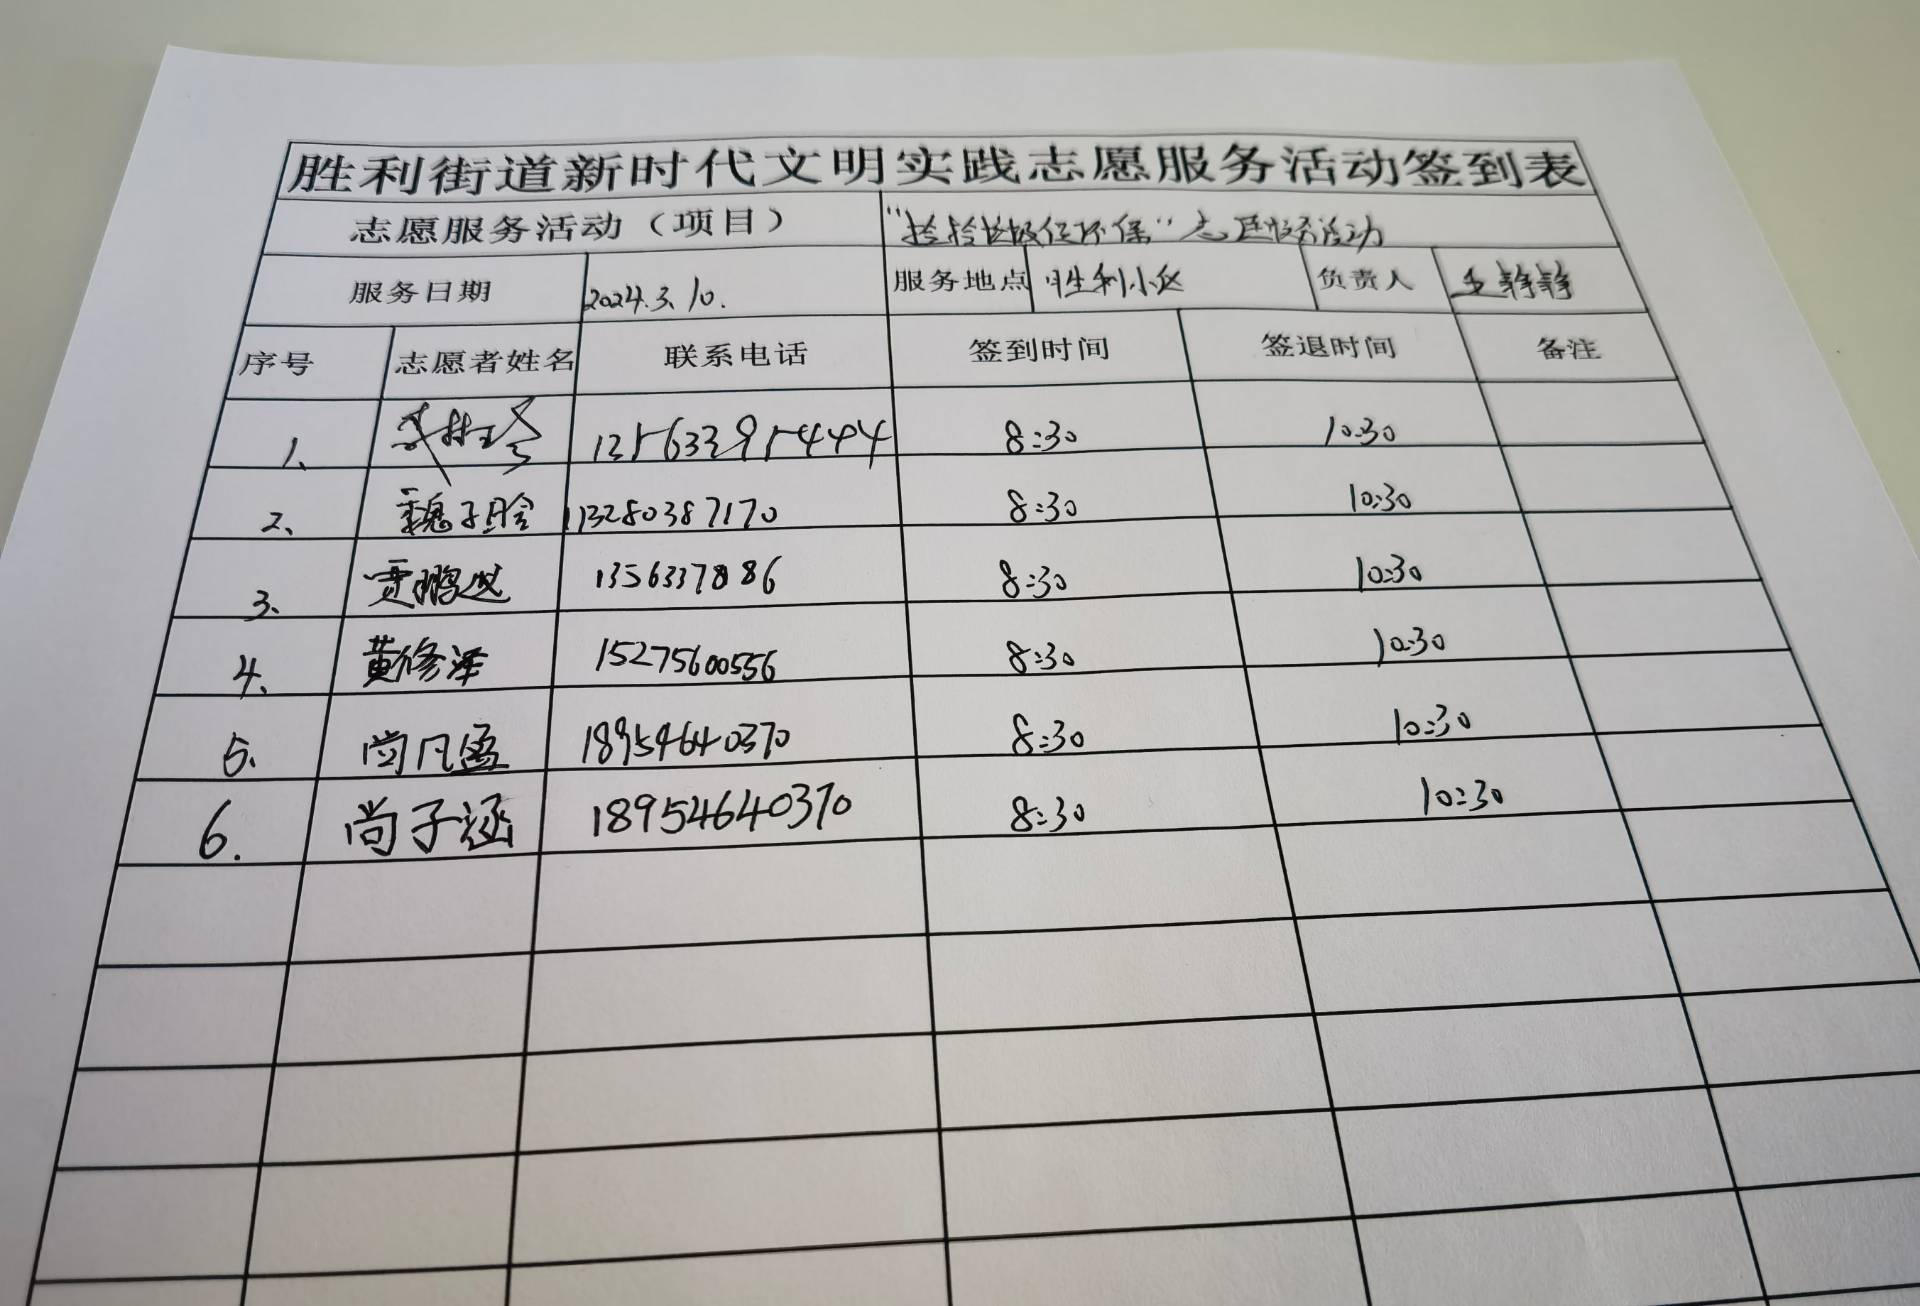 胜利街道新时代文明实践志愿服务活动签到表
志愿服务活动（项目） "捡拾垃圾促环保"志愿服务活动
服务日期 2024.3.10. 服务地点 胜利小区 负责人 王静静
序号 志愿者姓名 联系电话 签到时间 签退时间 备注
1、 8:30 10:30
2、 魏子晗 13280387170 8:30 10:30
3、 贾鹏 1356337886 8:30 10:30
4、 黄修泽 15275600556 8:30 10:30
5、 尚凡盈 18954640370 8:30 10:30
6. 尚子涵 18954640370 8:30 10:30